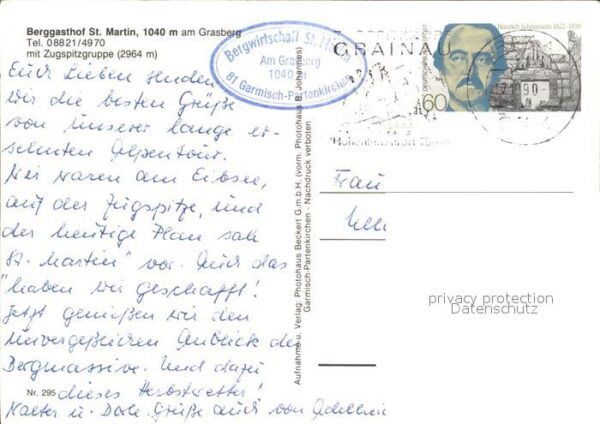 Berggasthof St. Martin, 1040 m am Grasberg
Tel. 08821/4970
mit Zugspitzgruppe (2964 m)
Euch Lieben senden
wir die besten Grüße
von unserer lange er-
sehnten Alpentour.
Wir waren am Eibsee,
auf der Zugspitze, und
der heutige Plan sah
"St. Martin" vor. Auch das
haben wir geschafft!
Jetzt genießen wir den
unvergeßlichen Anblick der
Bergmassive. Und dazu
dieses Herbstwetter!
Nr. 295
Walter u. Dorle. Grüße auch von
Bergwirtschaft St. Martin
Am Grasberg
1040
81 Garmisch-Partenkirchen
Aufnahme u. Verlag: Photohaus Beckert G.m.b.H. (vorm. Photohaus B. Johannes)
Garmisch-Partenkirchen - Nachdruck verboten
GRAINAU
90
DEUTSCHE BUNDESPOST
60
Heinrich Schliemann 1822-1890
Frau
privacy protection
Datenschutz